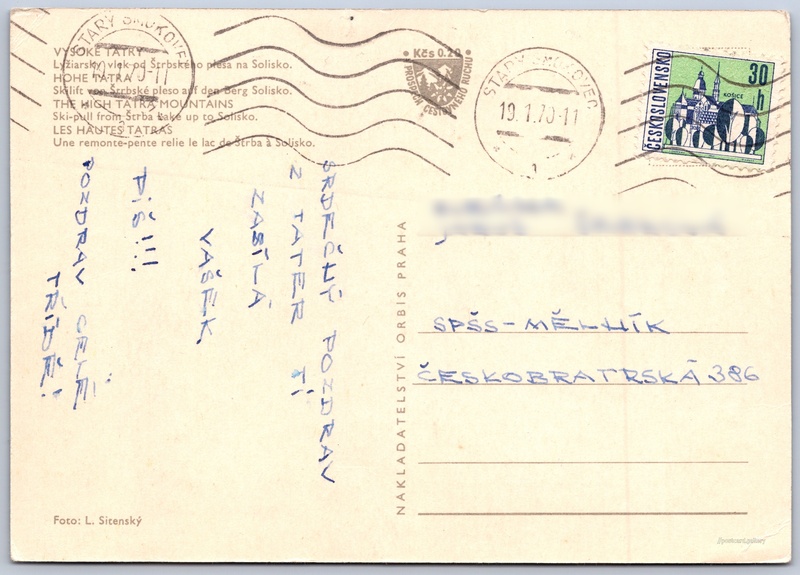 VYSOKÉ TATRY
Lyžiarsky vlek od Štrbského plesa na Solisko.
HOHE TATRA
Skilift von Štrbské pleso auf den Berg Solisko.
THE HIGH TATRA MOUNTAINS
Ski-pull from Štrba Lake up to Solisko.
LES HAUTES TATRAS
Une remonte-pente relie le lac de Štrba à Solisko.
STARÝ SMOKOVEC
• Kčs 0.20 •
PRÍSPEVOK CESTOVNÉHO RUCHU
STARÝ SMOKOVEC
19.1.70-11
1
ČESKOSLOVENSKO
30 h
KOŠICE
SRDEČNÝ POZDRAV
Z TATER TI
ZASÍLÁ
VAŠEK.
PIŠ!!!
POZDRAV CELÉ
TŘÍDĚ!
NAKLADATELSTVÍ ORBIS PRAHA
SPŠS-MĚLNÍK
ČESKOBRATRSKÁ 386
Foto: L. Sitenský